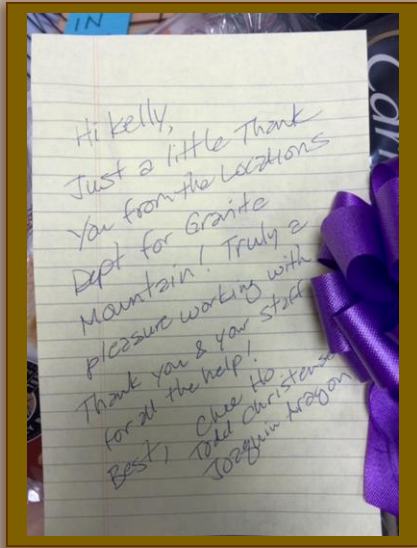 IN
Hi Kelly,
Just a little Thank
You from the Locations
Dept for Granite
Mountain! Truly a
pleasure working with
Thank you & your staff
for all the help!
Best, Chee Ho
Todd Christensen
Joaquin Aragon
Car